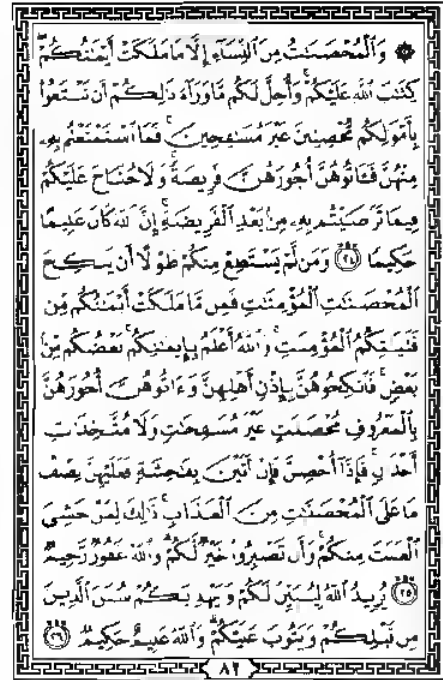 ۞ وَٱلْمُحْصَنَٰتُ مِنَ ٱلنِّسَآءِ إِلَّا مَا مَلَكَتْ أَيْمَٰنُكُمْ
كِتَٰبَ ٱللَّهِ عَلَيْكُمْ وَأُحِلَّ لَكُم مَّا وَرَآءَ ذَٰلِكُمْ أَن تَبْتَغُوا۟
بِأَمْوَٰلِكُم مُّحْصِنِينَ غَيْرَ مُسَٰفِحِينَ فَمَا ٱسْتَمْتَعْتُم بِهِۦ
مِنْهُنَّ فَـَٔاتُوهُنَّ أُجُورَهُنَّ فَرِيضَةً وَلَا جُنَاحَ عَلَيْكُمْ
فِيمَا تَرَٰضَيْتُم بِهِۦ مِنۢ بَعْدِ ٱلْفَرِيضَةِ إِنَّ ٱللَّهَ كَانَ عَلِيمًا
حَكِيمًا ۝٢٤ وَمَن لَّمْ يَسْتَطِعْ مِنكُمْ طَوْلًا أَن يَنكِحَ
ٱلْمُحْصَنَٰتِ ٱلْمُؤْمِنَٰتِ فَمِن مَّا مَلَكَتْ أَيْمَٰنُكُم مِّن
فَتَيَٰتِكُمُ ٱلْمُؤْمِنَٰتِ وَٱللَّهُ أَعْلَمُ بِإِيمَٰنِكُم بَعْضُكُم مِّنۢ
بَعْضٍ فَٱنكِحُوهُنَّ بِإِذْنِ أَهْلِهِنَّ وَءَاتُوهُنَّ أُجُورَهُنَّ
بِٱلْمَعْرُوفِ مُحْصَنَٰتٍ غَيْرَ مُسَٰفِحَٰتٍ وَلَا مُتَّخِذَٰتِ
أَخْدَانٍ فَإِذَآ أُحْصِنَّ فَإِنْ أَتَيْنَ بِفَٰحِشَةٍ فَعَلَيْهِنَّ نِصْفُ
مَا عَلَى ٱلْمُحْصَنَٰتِ مِنَ ٱلْعَذَابِ ذَٰلِكَ لِمَنْ خَشِىَ
ٱلْعَنَتَ مِنكُمْ وَأَن تَصْبِرُوا۟ خَيْرٌ لَّكُمْ وَٱللَّهُ غَفُورٌ رَّحِيمٌ
۝٢٥ يُرِيدُ ٱللَّهُ لِيُبَيِّنَ لَكُمْ وَيَهْدِيَكُمْ سُنَنَ ٱلَّذِينَ
مِن قَبْلِكُمْ وَيَتُوبَ عَلَيْكُمْ وَٱللَّهُ عَلِيمٌ حَكِيمٌ ۝٢٦
٨٢